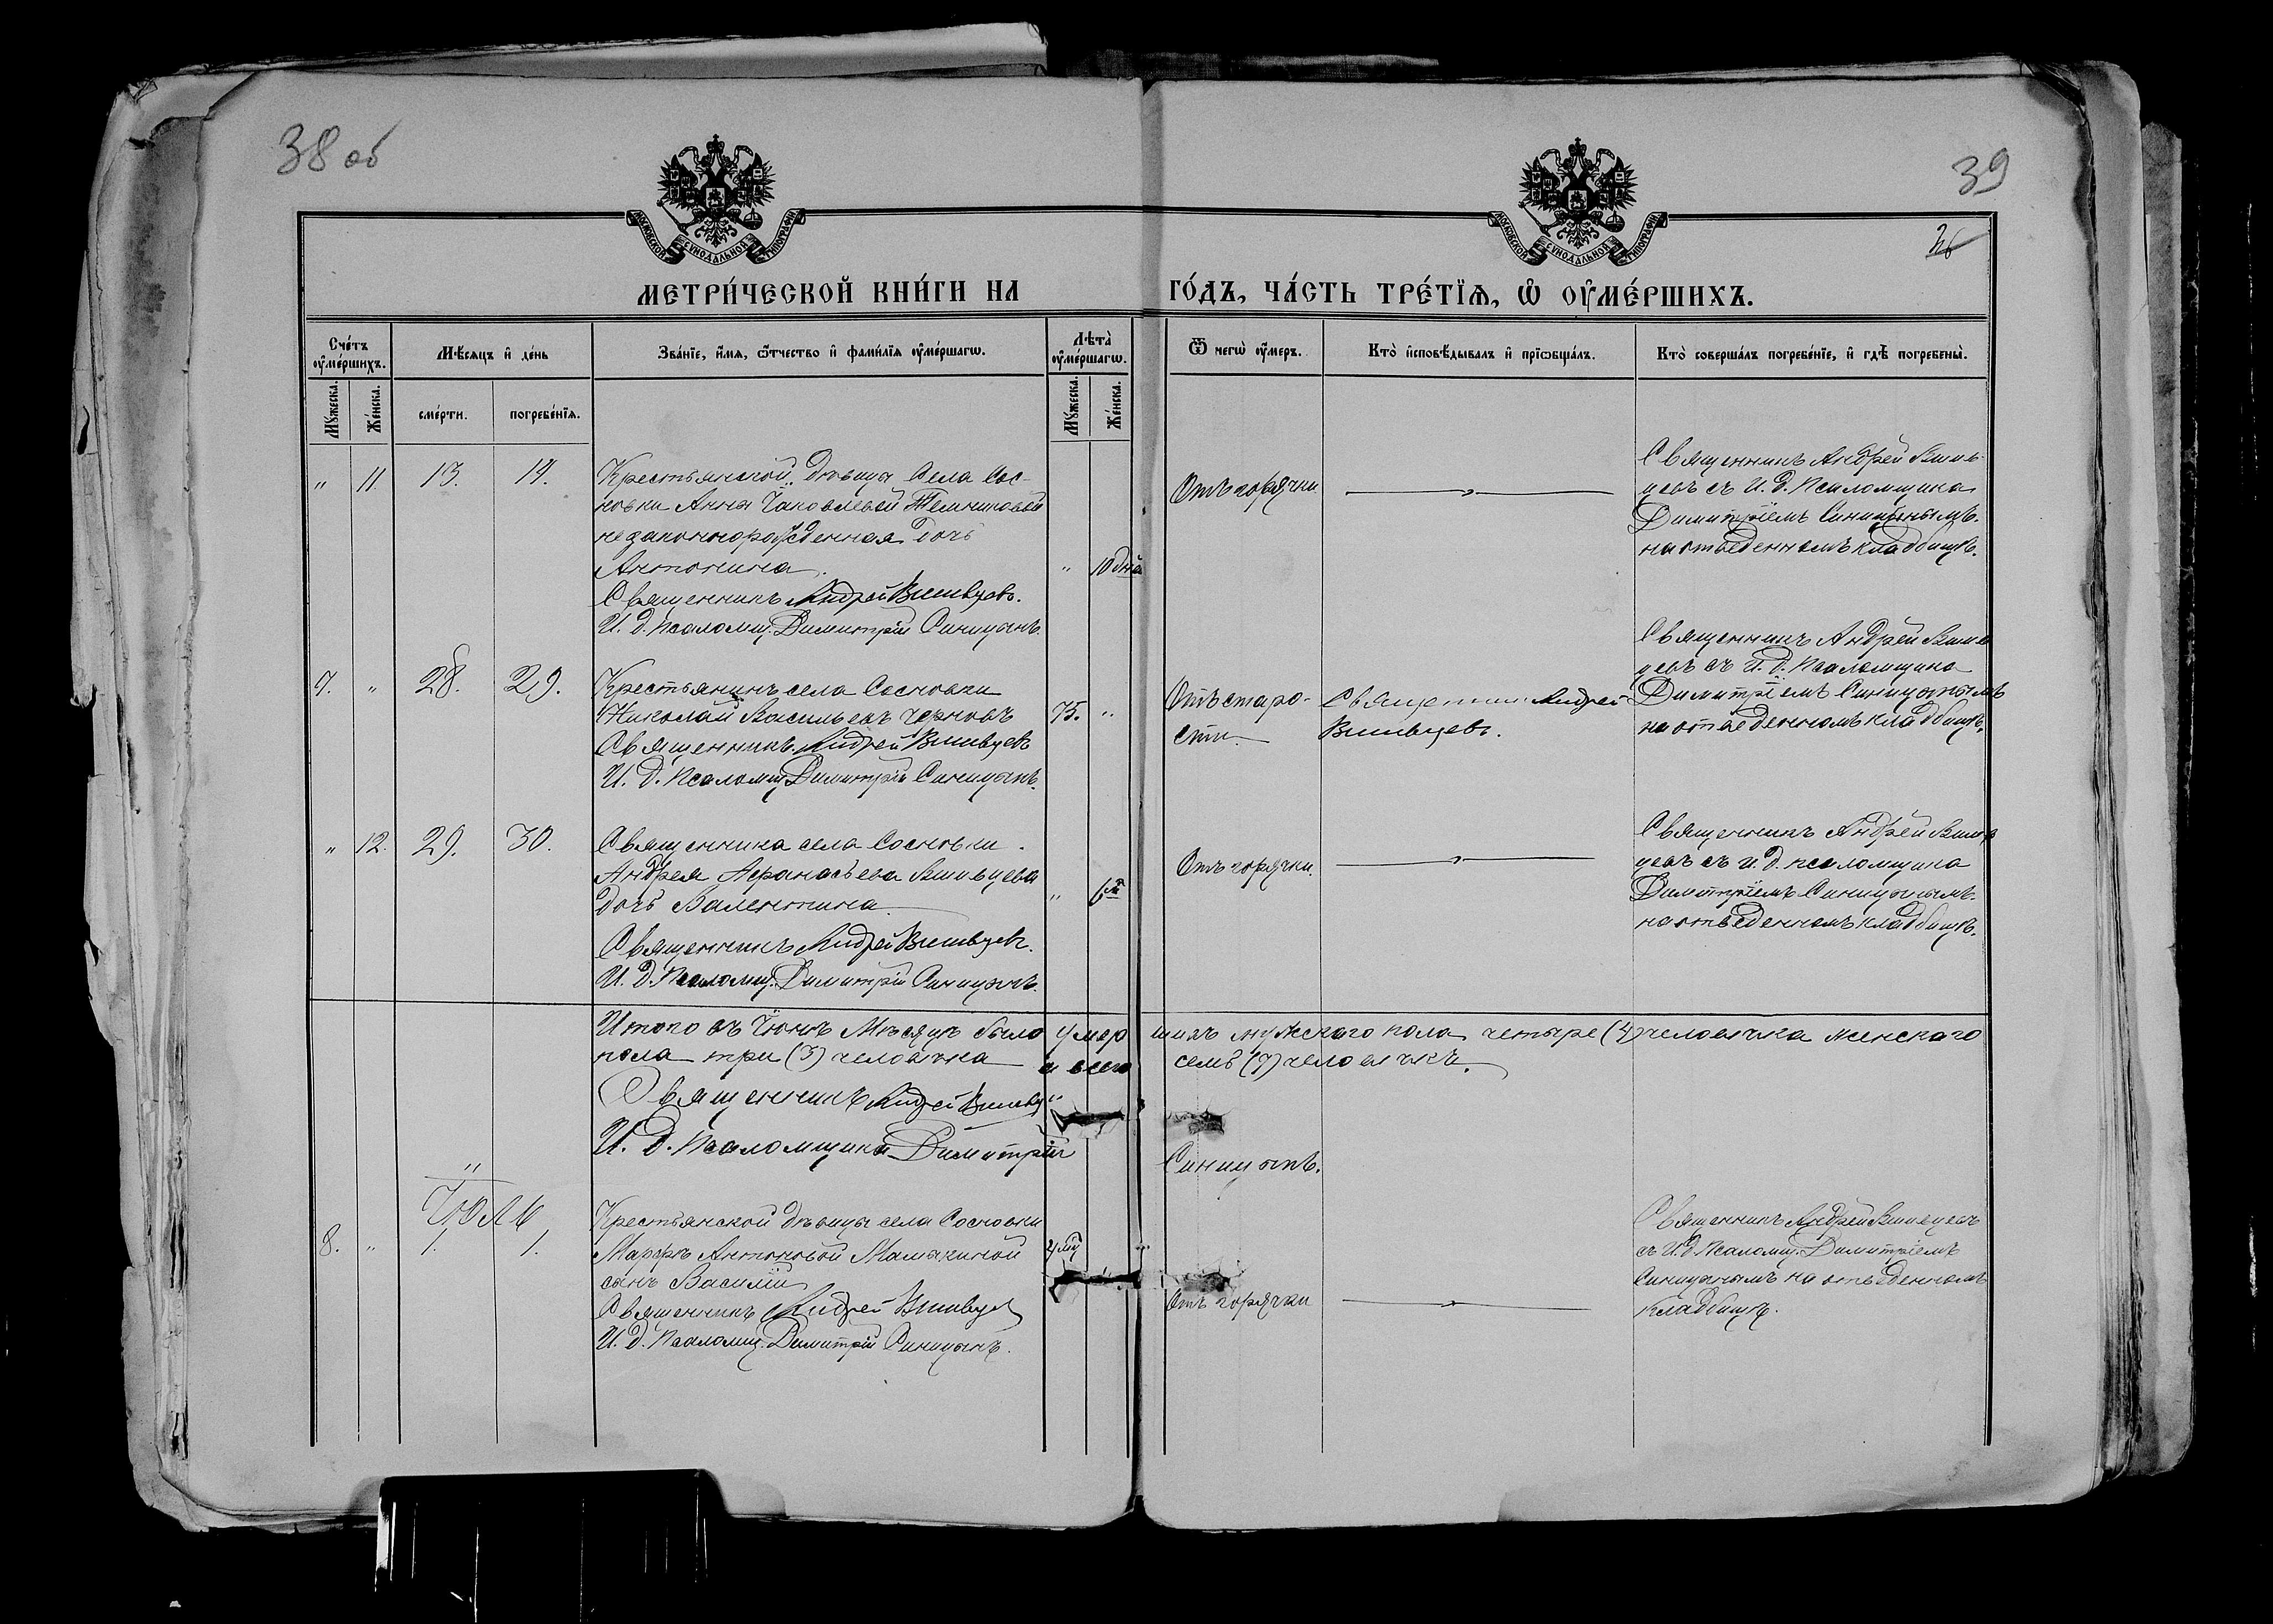 38 об
39
МОСКОВСКОЙ СѴНОДАЛЬНОЙ ТИПОГРАФІИ
МОСКОВСКОЙ СѴНОДАЛЬНОЙ ТИПОГРАФІИ
МЕТРИ́ЧЕСКОЙ КНИ́ГИ НА ГО́ДЪ, ЧА́СТЬ ТРЕ́ТЇѦ, Ѡ҆ ОУ҆МЕ́РШИХЪ.
Сче́тъ оу҆ме́ршихъ.
Мѣ́сѧцъ и҆ де́нь
Зва́нїе, и҆́мѧ, ѻ҆́тчество и҆ фами́лїѧ оу҆ме́ршагѡ.
Лѣ̑та̀ оу҆ме́ршагѡ.
Ѿ чегѡ̀ оу҆́меръ.
Кто̀ и҆сповѣ́дывалъ и҆ прїѡбща́лъ.
Кто̀ соверша́лъ погребе́нїе, и҆ гдѣ̀ погребены̀.
Мꙋ́жеска.
Же́нска.
сме́рти.
погребе́нїѧ.
Мꙋ́жеска.
Же́нска.
" 11. 13. 14.
Крестьянской дѣвицы села Сос-
новки Анны Іаковлевой
незаконнорожденная дочь
Антонина. " 10 дня
Священникъ Андрей Вишвцевъ.
И. д. псаломщ. Димитрій Синицынъ.
Отъ горячки
Священникъ Андрей Вишв-
цевъ съ И. д. Псаломщика
Димитріемъ Синицынымъ.
на отведенномъ кладбищѣ.
7. " 28. 29.
Крестьянинъ села Сосновки
Николай Васильевъ Черновъ 75. "
Священникъ Андрей Вишвцевъ
И. д. Псаломщ. Димитрій Синицынъ.
Отъ старо-
сти.
Священник Андрей
Вишвцевъ.
Священникъ Андрей Вишв
цевъ съ И. д. Псаломщика
Димитріемъ Синицынымъ
на отведенномъ кладбищѣ.
" 12. 29. 30.
Священника села Сосновки
Андрея Афанасьева Вишвцева
дочь Валентина " 6 м
Священникъ Андрей Вишвцевъ.
И. д. Псаломщ. Димитрій Синицынъ.
Отъ горячки.
Священникъ Андрей Вишв
цевъ съ и. д. псаломщика
Димитріемъ Синицынымъ.
на отведенномъ кладбищѣ.
Итого въ Іюнѣ мѣсяцѣ было умершихъ мужскаго пола четыре (4) человѣка женскаго
пола три (3) человѣка а всего семь (7) человѣкъ.
Священникъ Андрей Вишвц
И. д. Псаломщика Димитрій Синицынъ.
Іюль
8. " 1. 1.
Крестьянской дѣвицы села Сосновки
Марѳы Антоновой Мамакиной
сынъ Василій
Священникъ Андрей Вишвцев
И. д. Псаломщ. Димитрій Синицынъ.
Отъ горячки
Священникъ Андрей Вишвцевъ
съ И. д. Псаломщ. Димитріемъ
Синицынымъ на отведенномъ
кладбищѣ.